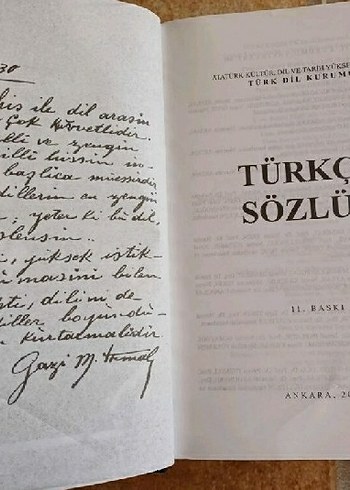 30
his ile dil arasın
çok kuvvetlidir.
lli ve zengin
illi hissin in
başlıca müessirdir
dillerin en zengin
; yeter ki bu dil,
işlensin..
i, yüksek istik-
masını bilen
eti, dilini de
diller boyundu-
kurtarmalıdır
Gazi M. Kemal
ATATÜRK KÜLTÜR, DİL VE TARİH YÜKSE
TÜRK DİL KURUMU
TÜRKÇ
SÖZLÜ
11. BASKI
ANKARA, 20